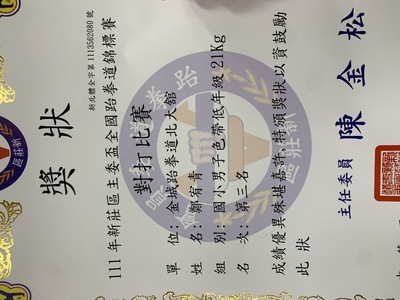 新北體全字第 1113562080 號
獎狀
111年新莊區主委盃全國跆拳道錦標賽
對打比賽
單位：金城跆拳道北大館
姓名：鄭宥青
組別：國小男子色帶低年級 21Kg
名次：第三名
成績優異殊堪嘉許，特頒獎狀以資鼓勵
此狀
主任委員 陳金松